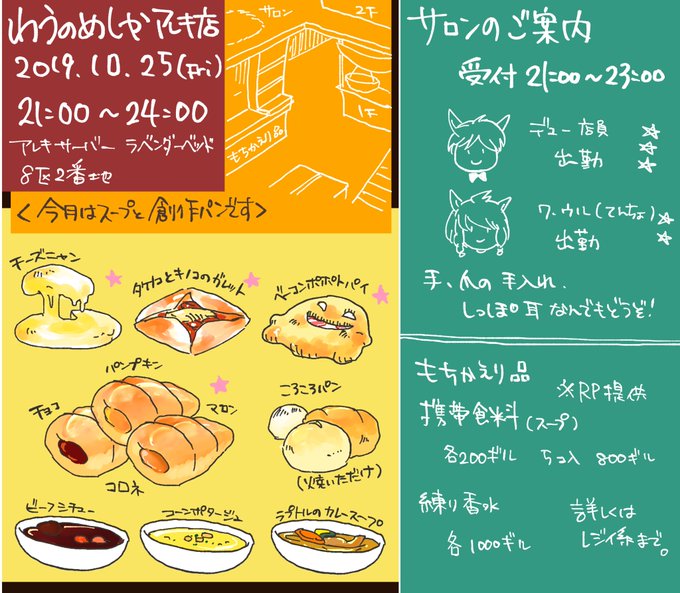 わうのめしや アレキ店
2019.10.25(Fri)
21:00～24:00
アレキサーバー ラベンダーベッド
8区2番地
サロン
2F
1F
もちかえり品
<今月はスープと創作パンです>
チーズニャン
タケノコとキノコのガレット
ベーコンポポトパイ
パンプキン
チョコ
マロン
コロネ
ころころパン
(焼いただけ)
ビーフシチュー
コーンポタージュ
ラプトルのカレースープ
サロンのご案内
受付 21:00～23:00
デュー店員
出勤
ワ.ウル(てんちょ)
出勤
手、爪の手入れ、
しっぽ耳なんでもどうぞ!
もちかえり品
※RP提供
携帯食料(スープ)
各200ギル 5コ入 800ギル
練り香水
各1000ギル
詳しくは
レジ係まで。